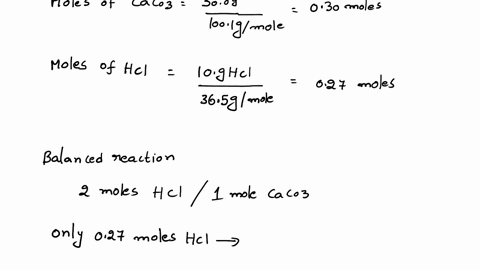 Moles of CaCo3 = 30.0g / 100.1g/mole = 0.30 moles
Moles of Hcl = 10.g Hcl / 36.5g/mole = 0.27 moles
Balanced reaction
2 moles Hcl / 1 mole CaCo3
only 0.27 moles Hcl →